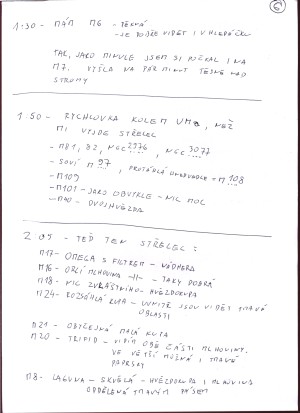 6
1:30 - MÁM M6 - PĚKNÁ
- JE DOBŘE VIDĚT I V HLEDÁČKU
TAK, JAKO MINULE JSEM SI POČKAL I NA
M7. VYŠLA NA PÁR MINUT TĚSNĚ NAD
STROMY
1:50 - RYCHLOVKA KOLEM UMa, NEŽ
MI VYJDE STŘELEC
- M81, 82, NGC 2976, NGC 3077
- SOVÍ M97, PROTÁHLÁ M108
- M109
- M101 - JARO OBVYKLE - NIC MOC
- M40 - DVOJHVĚZDA
2:05 - TEĎ TEN STŘELEC:
M17 - OMEGA S FILTREM - NÁDHERA
M16 - ORLÍ MLHOVINA -||- TAKY DOBRÁ
M18 - NIC ZVLÁŠTNÍHO - HVĚZDOKUPA
M24 - ROZSÁHLÁ KUPA - UVNITŘ JSOU VIDĚT TMAVÉ
OBLASTI
M21 - OBYČEJNÁ MALÁ KUPA
M20 - TRIFID - VIDÍM OBĚ ČÁSTI MLHOVINY.
VE VĚTŠÍ MOŽNÁ I TMAVÉ
PAPRSKY
M8 - LAGUNA - SKVĚLÁ - HVĚZDOKUPA I MLHOVINA
ODDĚLENÁ TMAVÝM PÁSEM